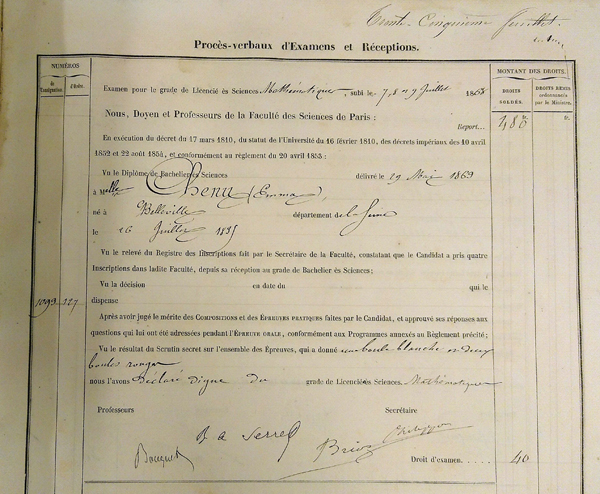 Trente-Cinquième feuillet
Procès-verbaux d'Examens et Réceptions.
NUMÉROS
de Consignation
d'Ordre.
MONTANT DES DROITS.
DROITS SOLDÉS.
DROITS REMIS
ordonnancés
par le Ministre.
Examen pour le grade de Licencié ès Sciences Mathématiques, subi le 7, 8 et 9 Juillet 1868
Nous, Doyen et Professeurs de la Faculté des Sciences de Paris :
Report... 480 fr.
fr.
En exécution du décret du 17 mars 1810, du statut de l'Université du 16 février 1810, des décrets impériaux des 10 avril
1852 et 22 août 1854, et conformément au règlement du 20 avril 1853 :
Vu le Diplôme de Bachelier ès Sciences délivré le 29 Mai 1863
à Melle Chenu (Emma),
né à Belleville département de la Seine
le 16 Juillet 1835
Vu le relevé du Registre des Inscriptions fait par le Secrétaire de la Faculté, constatant que le Candidat a pris quatre
Inscriptions dans ladite Faculté, depuis sa réception au grade de Bachelier ès Sciences ;
Vu la décision en date du qui le
dispense
1093 127
Après avoir jugé le mérite des Compositions et des Épreuves pratiques faites par le Candidat, et approuvé ses réponses aux
questions qui lui ont été adressées pendant l'Épreuve orale, conformément aux Programmes annexés au Règlement précité ;
Vu le résultat du Scrutin secret sur l'ensemble des Épreuves, qui a donné une boule blanche et deux
boules rouges
nous l'avons Déclaré digne du grade de Licencié ès Sciences. Mathématiques
Professeurs
Secrétaire
J A Serret
Bouquet
Briot
Philippon
Droit d'examen..... 40